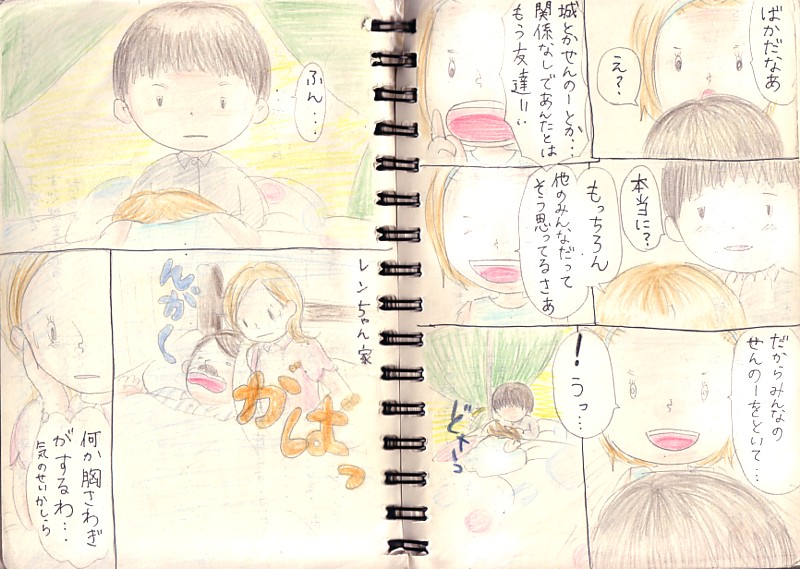 ばかだなあ
え?
城とかせんのーとか…
関係なしであんたとは
もう友達!!
本当に?
もっちろん
他のみんなだって
そう思ってるさあ
だからみんなの
せんのーをといて…
!うっ…
どさーっ
ふん…
レンちゃん家
んがー
がばっ
何か胸さわぎ
がするわ…
気のせいかしら